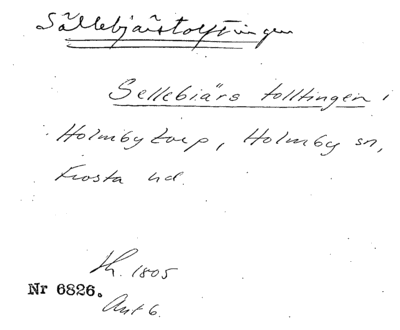 Sällebjärstolftingen
Sellebiärs tolltingen i
Holmbytorp, Holmby sn,
Frosta hd.
Th. 1805
Nr 6826.
Ant 6.